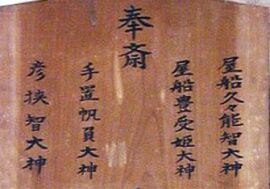 奉斎
屋船久々能智大神
屋船豊受姫大神
手置帆負大神
彦挟智大神